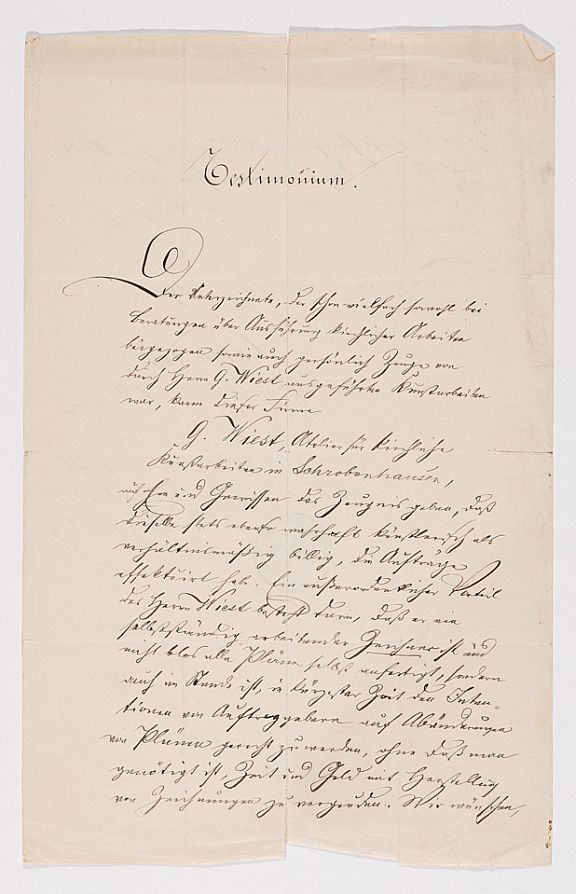 Testimonium.
Der Unterzeichnete, der schon vielfach sowohl bei
Beratungen über Ausführung kirchlicher Arbeiten
beigezogen sowie auch persönlich Zeuge von
durch Herrn G. Wiest ausgeführten Kunstarbeiten
war, kann dieser Firma
G. Wiest, Atelier für kirchliche
Kunstarbeiten in Schrobenhausen,
auf Ehre und Gewissen das Zeugnis geben, daß
dieselbe stets ebenso wahrhaft künstlerisch als
verhältnismäßig billig, die Aufträge
effektuirt habe. Ein außerordentlicher Vorteil
des Herrn Wiest besteht darin, daß er ein
selbstständig arbeitender Zeichner ist und
nicht blos alle Pläne selbst anfertigt, sondern
auch im Stande ist, in kürzester Zeit den Inten-
tionen von Auftraggebern auf Abänderungen
von Plänen gerecht zu werden, ohne daß man
genötigt ist, Zeit und Geld mit Herstellung
von Zeichnungen zu vergeuden. Wir wünschen,